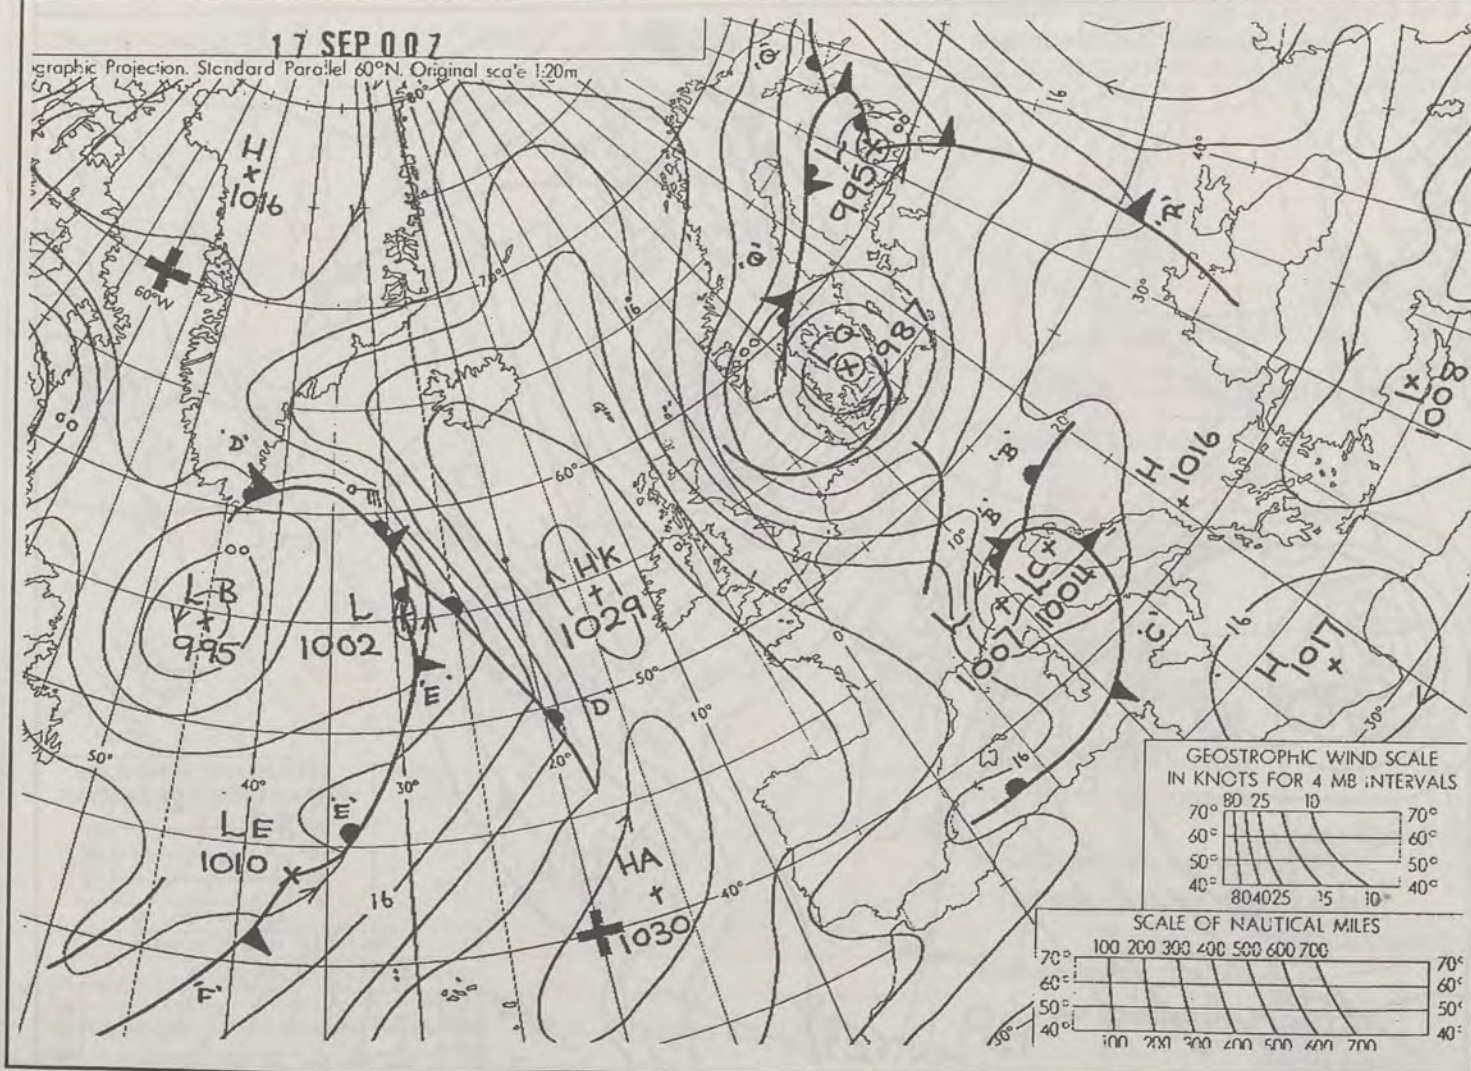 17 SEP 00Z
graphic Projection. Standard Parallel 60°N. Original scale 1:20m
80°
'Q'
16
H
1016
L
995
40°
'R'
60°W
70°
16
'Q'
30°
L Q
987
L
1008
'D'
60°
20
'B'
H
1016
'B'
10°
L B
995
L
1002
HK
1029
L C
1004
L
1007
'C'
16
H
1017
'E'
D
50°
0
10°
50°
40°
30°
20°
16
30°
L E
1010
'E'
16
HA
1030
40°
'F'
30°
GEOSTROPHIC WIND SCALE
IN KNOTS FOR 4 MB INTERVALS
80 25 10
70° 70°
60° 60°
50° 50°
40° 40°
80 40 25 15 10
SCALE OF NAUTICAL MILES
100 200 300 400 500 600 700
70° 70°
60° 60°
50° 50°
40° 40°
100 200 300 400 500 600 700